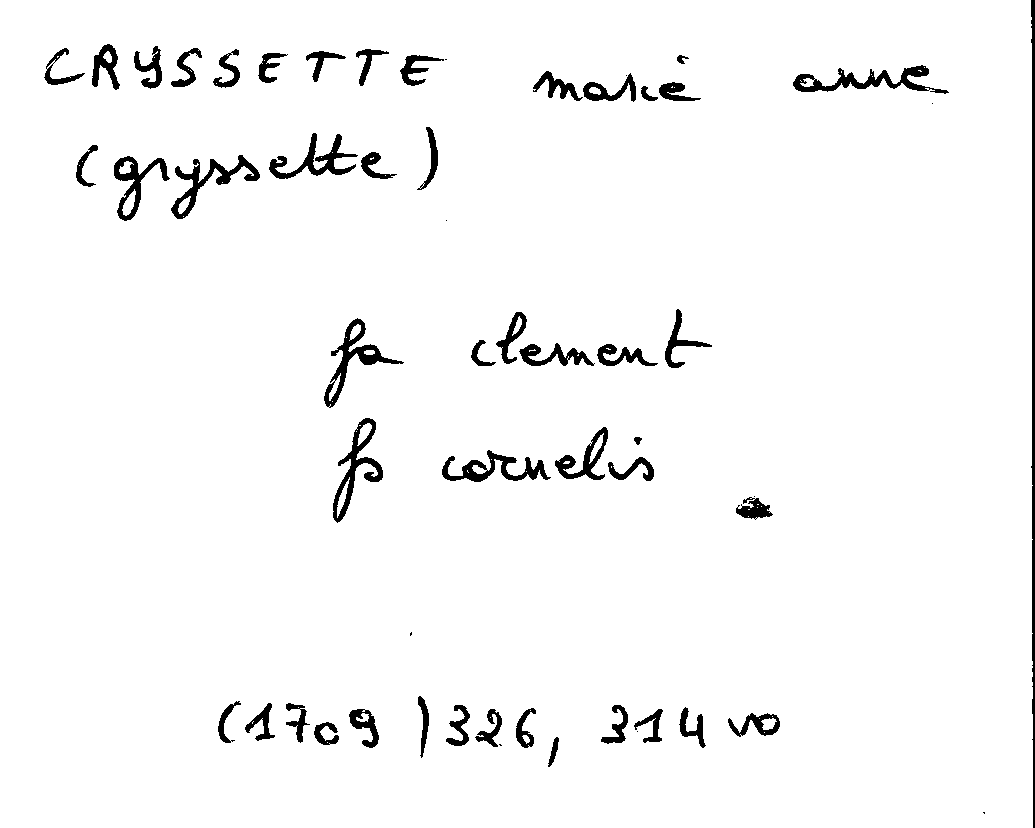 CRYSSETTE marie anne
(gryssette)
fa clement
fs cornelis
(1709) 326, 314 vo